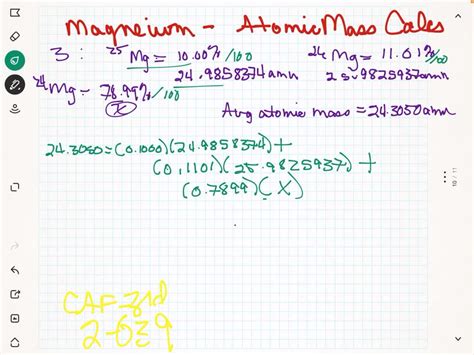 Magneium - Atomic Mass Calcs
3 : 25 Mg = 10.00%/100 26 Mg = 11.01%/100
24.9858374amu 25.9825937amu
24 Mg - 78.99%/100
X Avg atomic mass = 24.3050amu
24.3050 = (0.1000)(24.9858374) +
(0.1101)(25.9825937) +
(0.7899)(X)
10 / 11
CAF-3rd